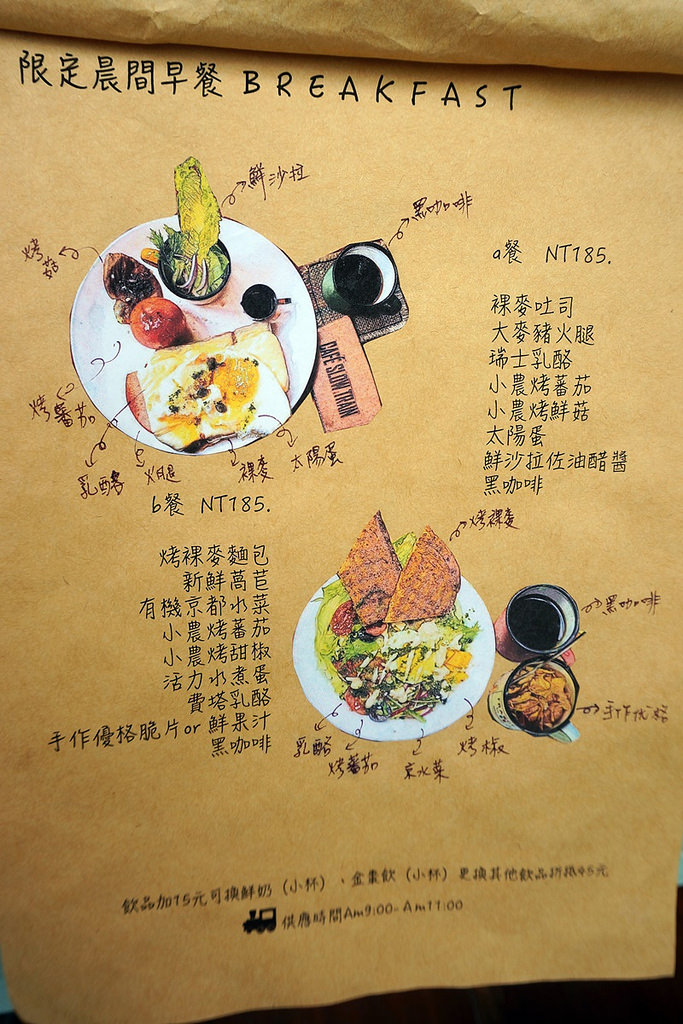 限定晨間早餐 BREAKFAST
鮮沙拉
黑咖啡
烤菇
CAFÉ SLOW TRAIN
烤蕃茄
乳酪
火腿
裸麥
太陽蛋
a餐 NT185.
裸麥吐司
大麥豬火腿
瑞士乳酪
小農烤蕃茄
小農烤鮮菇
太陽蛋
鮮沙拉佐油醋醬
黑咖啡
b餐 NT185.
烤裸麥麵包
新鮮萵苣
有機京都水菜
小農烤蕃茄
小農烤甜椒
活力水煮蛋
費塔乳酪
手作優格脆片or鮮果汁
黑咖啡
烤裸麥
黑咖啡
手作优格
乳酪
烤蕃茄
京水菜
烤椒
飲品加15元可換鮮奶（小杯）、金棗飲（小杯）更換其他飲品折抵45元
供應時間Am9:00-Am11:00